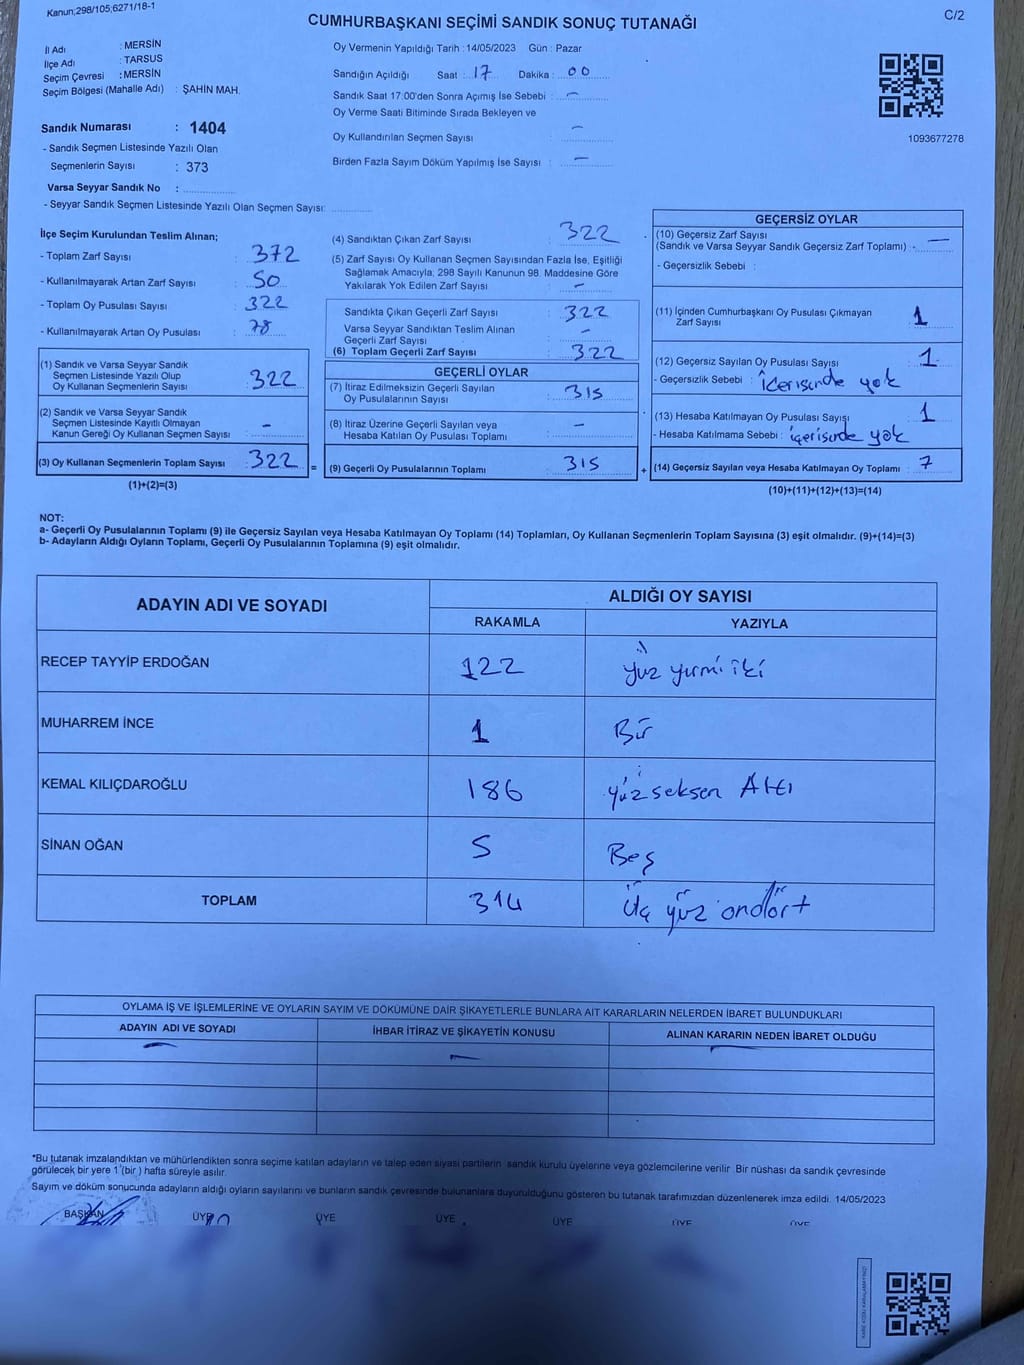 Kanun;298/105;6271/18-1
CUMHURBAŞKANI SEÇİMİ SANDIK SONUÇ TUTANAĞI
C/2
İl Adı : MERSİN
İlçe Adı : TARSUS
Seçim Çevresi : MERSİN
Seçim Bölgesi (Mahalle Adı) : ŞAHİN MAH.
Sandık Numarası : 1404
- Sandık Seçmen Listesinde Yazılı Olan
Seçmenlerin Sayısı : 373
Varsa Seyyar Sandık No :
- Seyyar Sandık Seçmen Listesinde Yazılı Olan Seçmen Sayısı:
Oy Vermenin Yapıldığı Tarih : 14/05/2023 Gün : Pazar
Sandığın Açıldığı Saat : 17 Dakika : 00
Sandık Saat 17:00'den Sonra Açımış İse Sebebi : —
Oy Verme Saati Bitiminde Sırada Bekleyen ve
Oy Kullandırılan Seçmen Sayısı —
Birden Fazla Sayım Döküm Yapılmış İse Sayısı : —
1093677278
İlçe Seçim Kurulundan Teslim Alınan;
- Toplam Zarf Sayısı : 372
- Kullanılmayarak Artan Zarf Sayısı : 50
- Toplam Oy Pusulası Sayısı : 322
- Kullanılmayarak Artan Oy Pusulası : 78
(1) Sandık ve Varsa Seyyar Sandık
Seçmen Listesinde Yazılı Olup
Oy Kullanan Seçmenlerin Sayısı : 322
(2) Sandık ve Varsa Seyyar Sandık
Seçmen Listesinde Kayıtlı Olmayan
Kanun Gereği Oy Kullanan Seçmen Sayısı : -
(3) Oy Kullanan Seçmenlerin Toplam Sayısı : 322 =
(1)+(2)=(3)
(4) Sandıktan Çıkan Zarf Sayısı : 322
(5) Zarf Sayısı Oy Kullanan Seçmen Sayısından Fazla İse, Eşitliği
Sağlamak Amacıyla, 298 Sayılı Kanunun 98. Maddesine Göre
Yakılarak Yok Edilen Zarf Sayısı : —
Sandıkta Çıkan Geçerli Zarf Sayısı : 322
Varsa Seyyar Sandıktan Teslim Alınan
Geçerli Zarf Sayısı : -
(6) Toplam Geçerli Zarf Sayısı : 322
GEÇERLİ OYLAR
(7) İtiraz Edilmeksizin Geçerli Sayılan
Oy Pusulalarının Sayısı : 315
(8) İtiraz Üzerine Geçerli Sayılan veya
Hesaba Katılan Oy Pusulası Toplamı : —
(9) Geçerli Oy Pusulalarının Toplamı : 315 +
GEÇERSİZ OYLAR
(10) Geçersiz Zarf Sayısı
(Sandık ve Varsa Seyyar Sandık Geçersiz Zarf Toplamı) : —
- Geçersizlik Sebebi :
(11) İçinden Cumhurbaşkanı Oy Pusulası Çıkmayan
Zarf Sayısı : 1
(12) Geçersiz Sayılan Oy Pusulası Sayısı : 1
- Geçersizlik Sebebi : İçerisinde yok
(13) Hesaba Katılmayan Oy Pusulası Sayısı : 1
- Hesaba Katılmama Sebebi : içerisinde yok
(14) Geçersiz Sayılan veya Hesaba Katılmayan Oy Toplamı : 7
(10)+(11)+(12)+(13)=(14)
NOT:
a- Geçerli Oy Pusulalarının Toplamı (9) ile Geçersiz Sayılan veya Hesaba Katılmayan Oy Toplamı (14) Toplamları, Oy Kullanan Seçmenlerin Toplam Sayısına (3) eşit olmalıdır. (9)+(14)=(3)
b- Adayların Aldığı Oyların Toplamı, Geçerli Oy Pusulalarının Toplamına (9) eşit olmalıdır.
ADAYIN ADI VE SOYADI ALDIĞI OY SAYISI
RAKAMLA YAZIYLA
RECEP TAYYİP ERDOĞAN 122 yüz yirmi iki
MUHARREM İNCE 1 Bir
KEMAL KILIÇDAROĞLU 186 yüz seksen Altı
SİNAN OĞAN 5 Beş
TOPLAM 314 Üç yüz ondört
OYLAMA İŞ VE İŞLEMLERİNE VE OYLARIN SAYIM VE DÖKÜMÜNE DAİR ŞİKAYETLERLE BUNLARA AİT KARARLARIN NELERDEN İBARET BULUNDUKLARI
ADAYIN ADI VE SOYADI İHBAR İTİRAZ VE ŞİKAYETİN KONUSU ALINAN KARARIN NEDEN İBARET OLDUĞU
— — —
*Bu tutanak imzalandıktan ve mühürlendikten sonra seçime katılan adayların ve talep eden siyasi partilerin sandık kurulu üyelerine veya gözlemcilerine verilir. Bir nüshası da sandık çevresinde
görülecek bir yere 1 (bir ) hafta süreyle asılır.
Sayım ve döküm sonucunda adayların aldığı oyların sayılarını ve bunların sandık çevresinde bulunanlara duyurulduğunu gösteren bu tutanak tarafımızdan düzenlenerek imza edildi. 14/05/2023
BAŞKAN ÜYE ÜYE ÜYE ÜYE ÜYE ÜYE